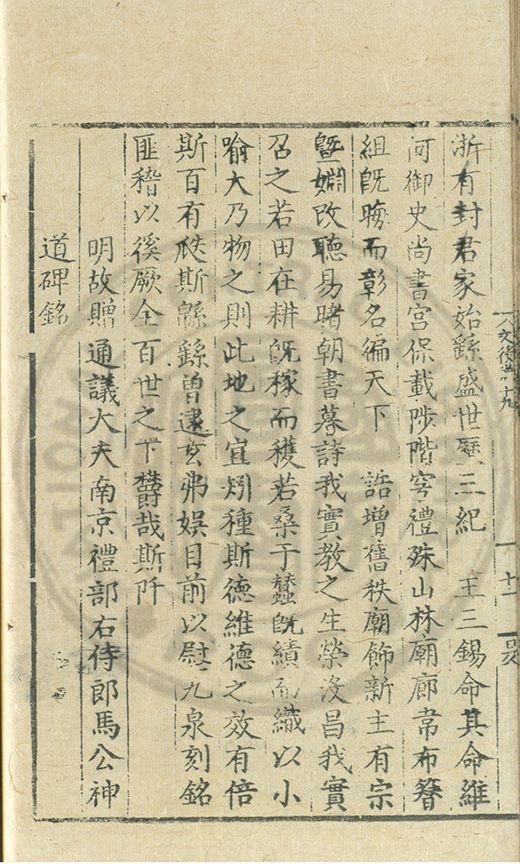 浙有封君家始繇盛世歷三紀　王三錫命其命維
何御史尚書宮保載陟階穹禮殊山林廟廊韋布簪
組旣晦而彰名徧天下　誥增舊秩廟飾新主有宗
曁嫺改聽易睹朝書暮詩我實教之生榮沒昌我實
召之若田在耕旣稼而穫若桑于蠶旣績而織以小
喻大乃物之則此地之宜矧種斯德維德之效有倍
斯百有𤓰斯緜繇曾逮玄弗娛目前以慰九泉刻銘
匪稽以徯厥全百世之下欝哉斯阡
明故贈通議大夫南京禮部右侍郎馬公神
道碑銘
十一